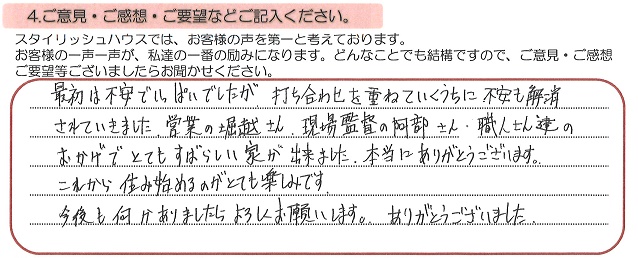 4.ご意見・ご感想・ご要望などご記入ください。
スタイリッシュハウスでは、お客様の声を第一と考えております。
お客様の一声一声が、私達の一番の励みになります。どんなことでも結構ですので、ご意見・ご感想
ご要望等ございましたらお聞かせください。
最初は不安でいっぱいでしたが 打ち合わせを重ねていくうちに 不安も解消
されていきました。営業の堀越さん、現場監督の阿部さん・職人さん達の
おかげで とてもすばらしい家が出来ました。本当にありがとうございます。
これから 住み始めるのがとても楽しみです。
今後も何かありましたらよろしくお願いします。ありがとうございました。